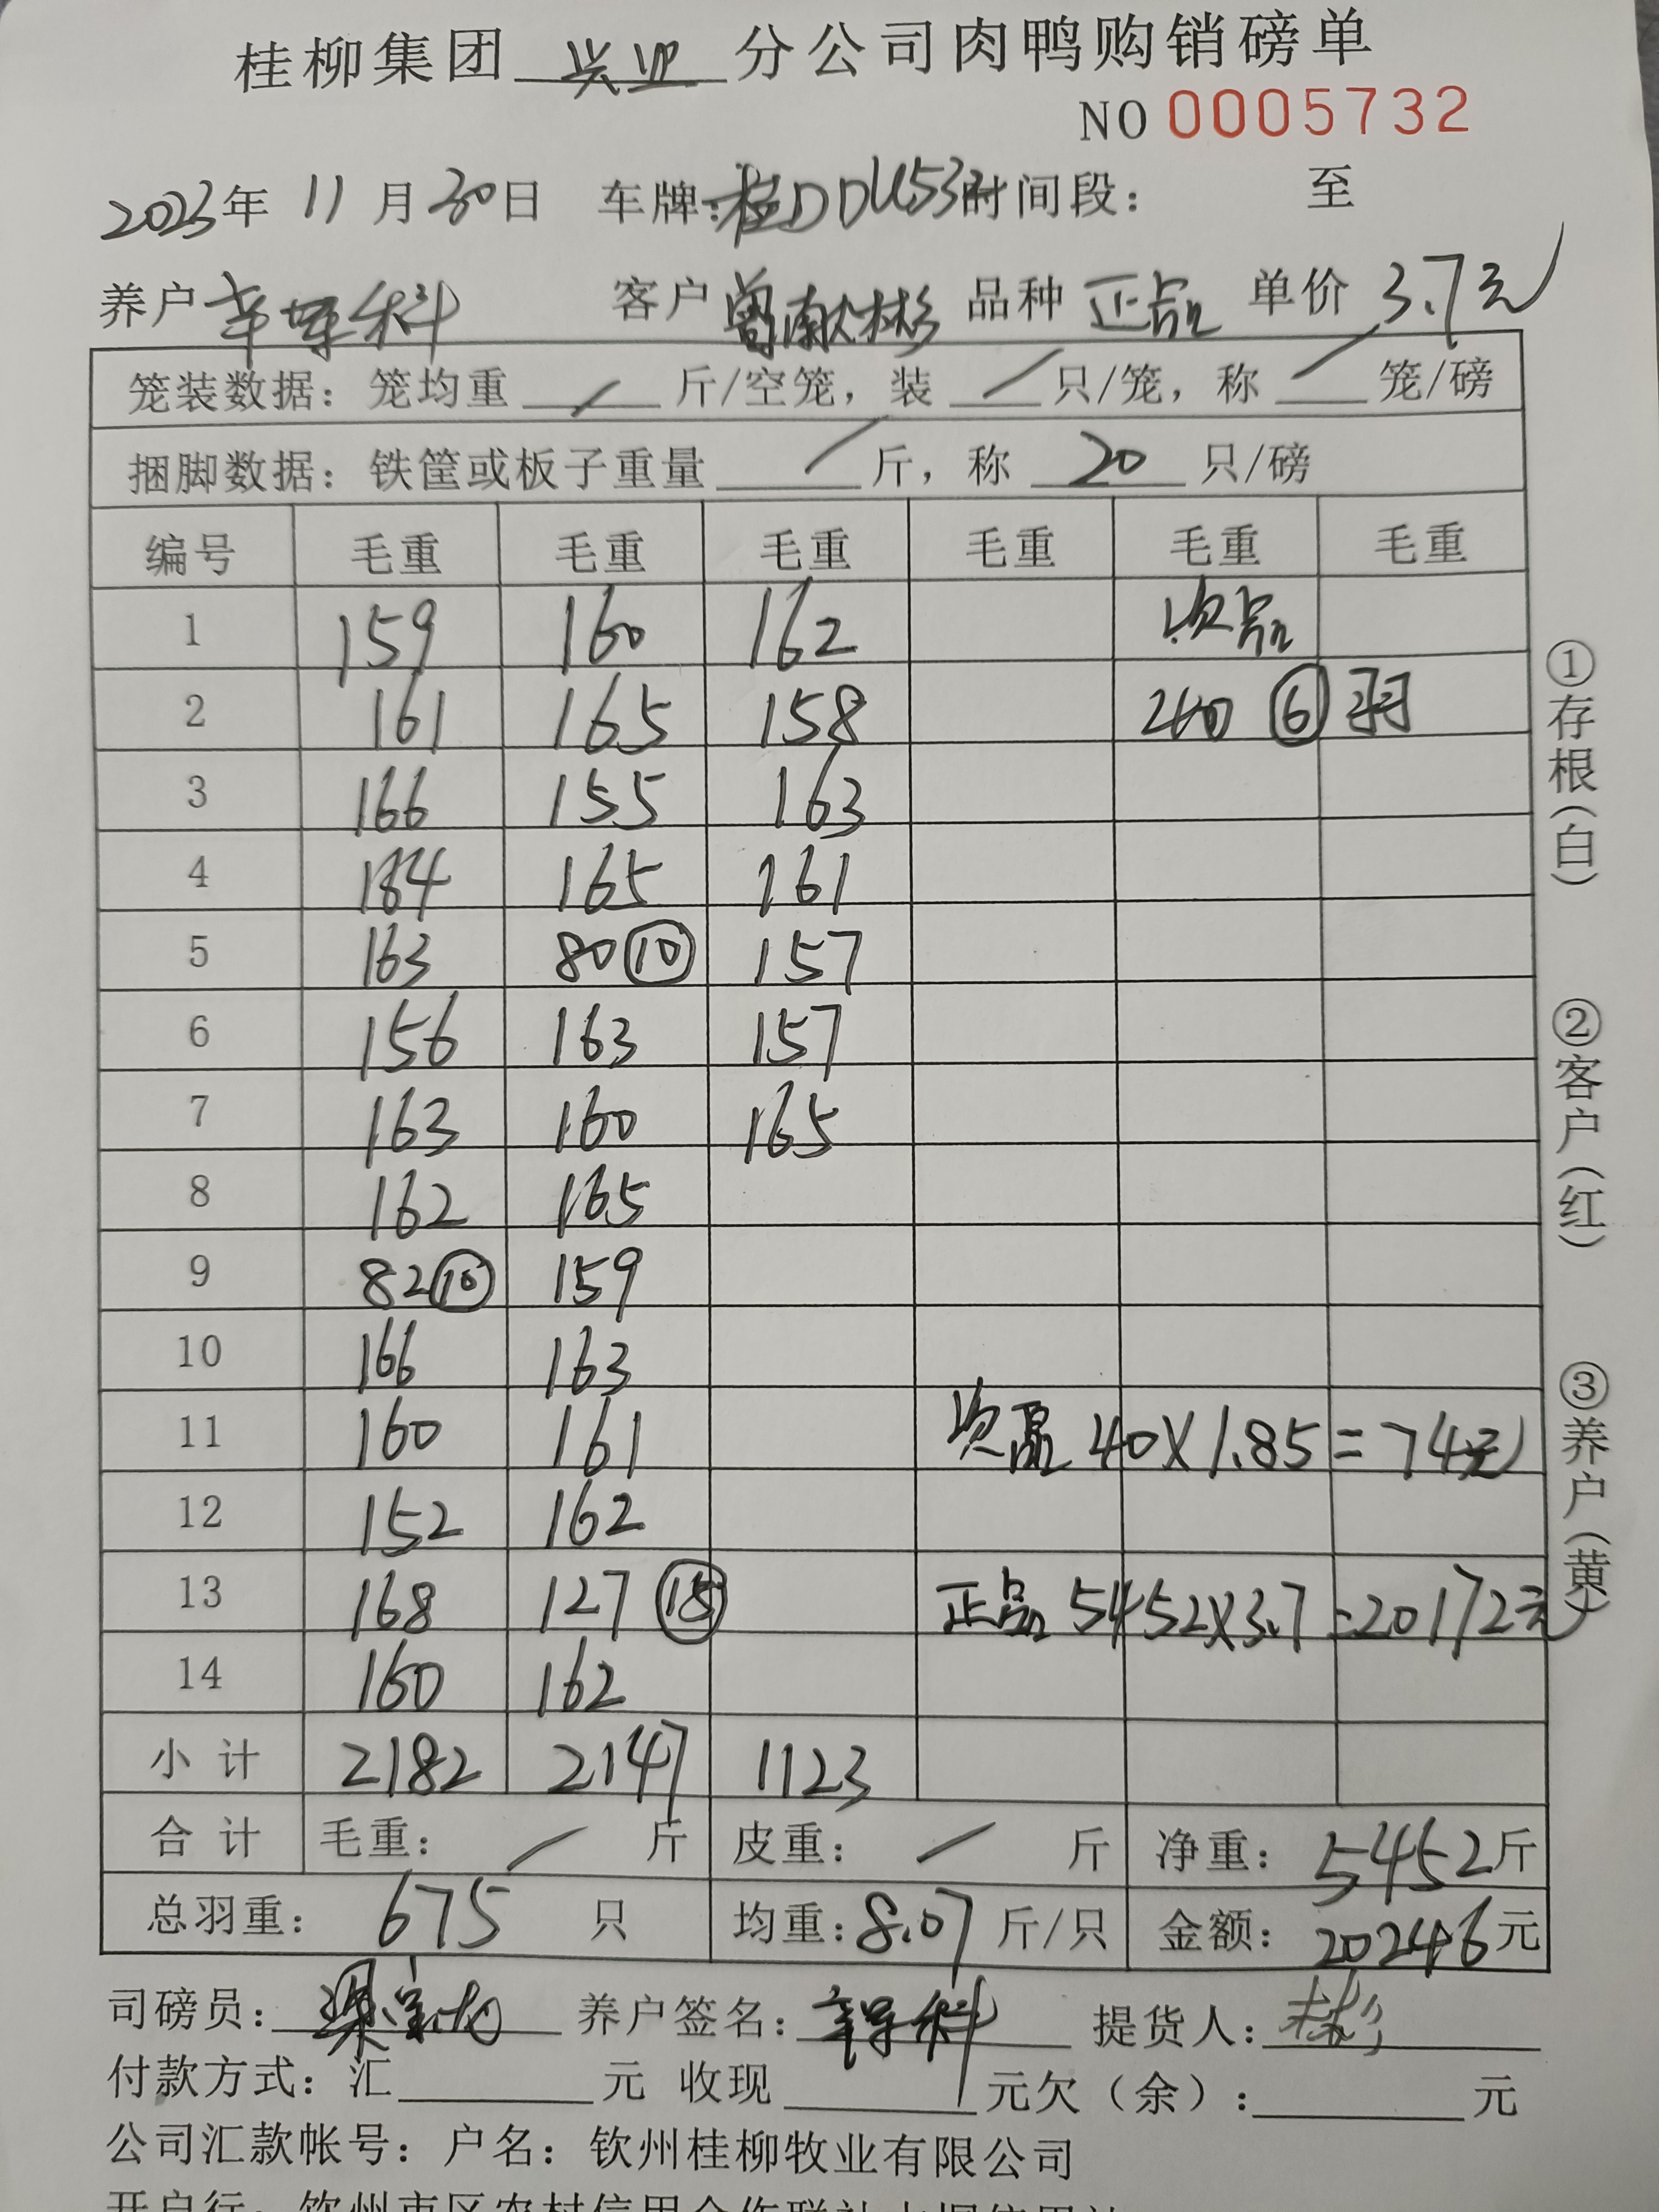 桂柳集团 兴业 分公司肉鸭购销磅单
NO 0005732
2023年 11 月 30日 车牌:桂DDU533时间段: 至
养户 辛坤科 客户 曾献彬 品种 正品 单价 3.7元
笼装数据:笼均重 / 斤/空笼,装 / 只/笼,称 / 笼/磅
捆脚数据:铁筐或板子重量 / 斤,称 20 只/磅
编号 毛重 毛重 毛重 毛重 毛重 毛重
1 159 160 162 次品
2 161 165 158 40 ⑥ 羽
3 166 155 163
4 184 165 161
5 163 80 ⑩ 157
6 156 163 157
7 163 160 165
8 162 165
9 82 ⑩ 159
10 166 163
11 160 161 次品 40×1.85=74元
12 152 162
13 168 127 ⑮ 正品 5452×3.7=20172元
14 160 162
小 计 2182 2147 1123
合 计 毛重: / 斤 皮重: / 斤 净重: 5452斤
总羽重: 675 只 均重:8.07 斤/只 金额: 20246元
司磅员: 养户签名: 辛坤科 提货人: 彬
付款方式:汇 元 收现 元欠(余): 元
公司汇款帐号:户名:钦州桂柳牧业有限公司
开户行:钦州市区农村信用合作联社
①存根(白)
②客户(红)
③养户(黄)